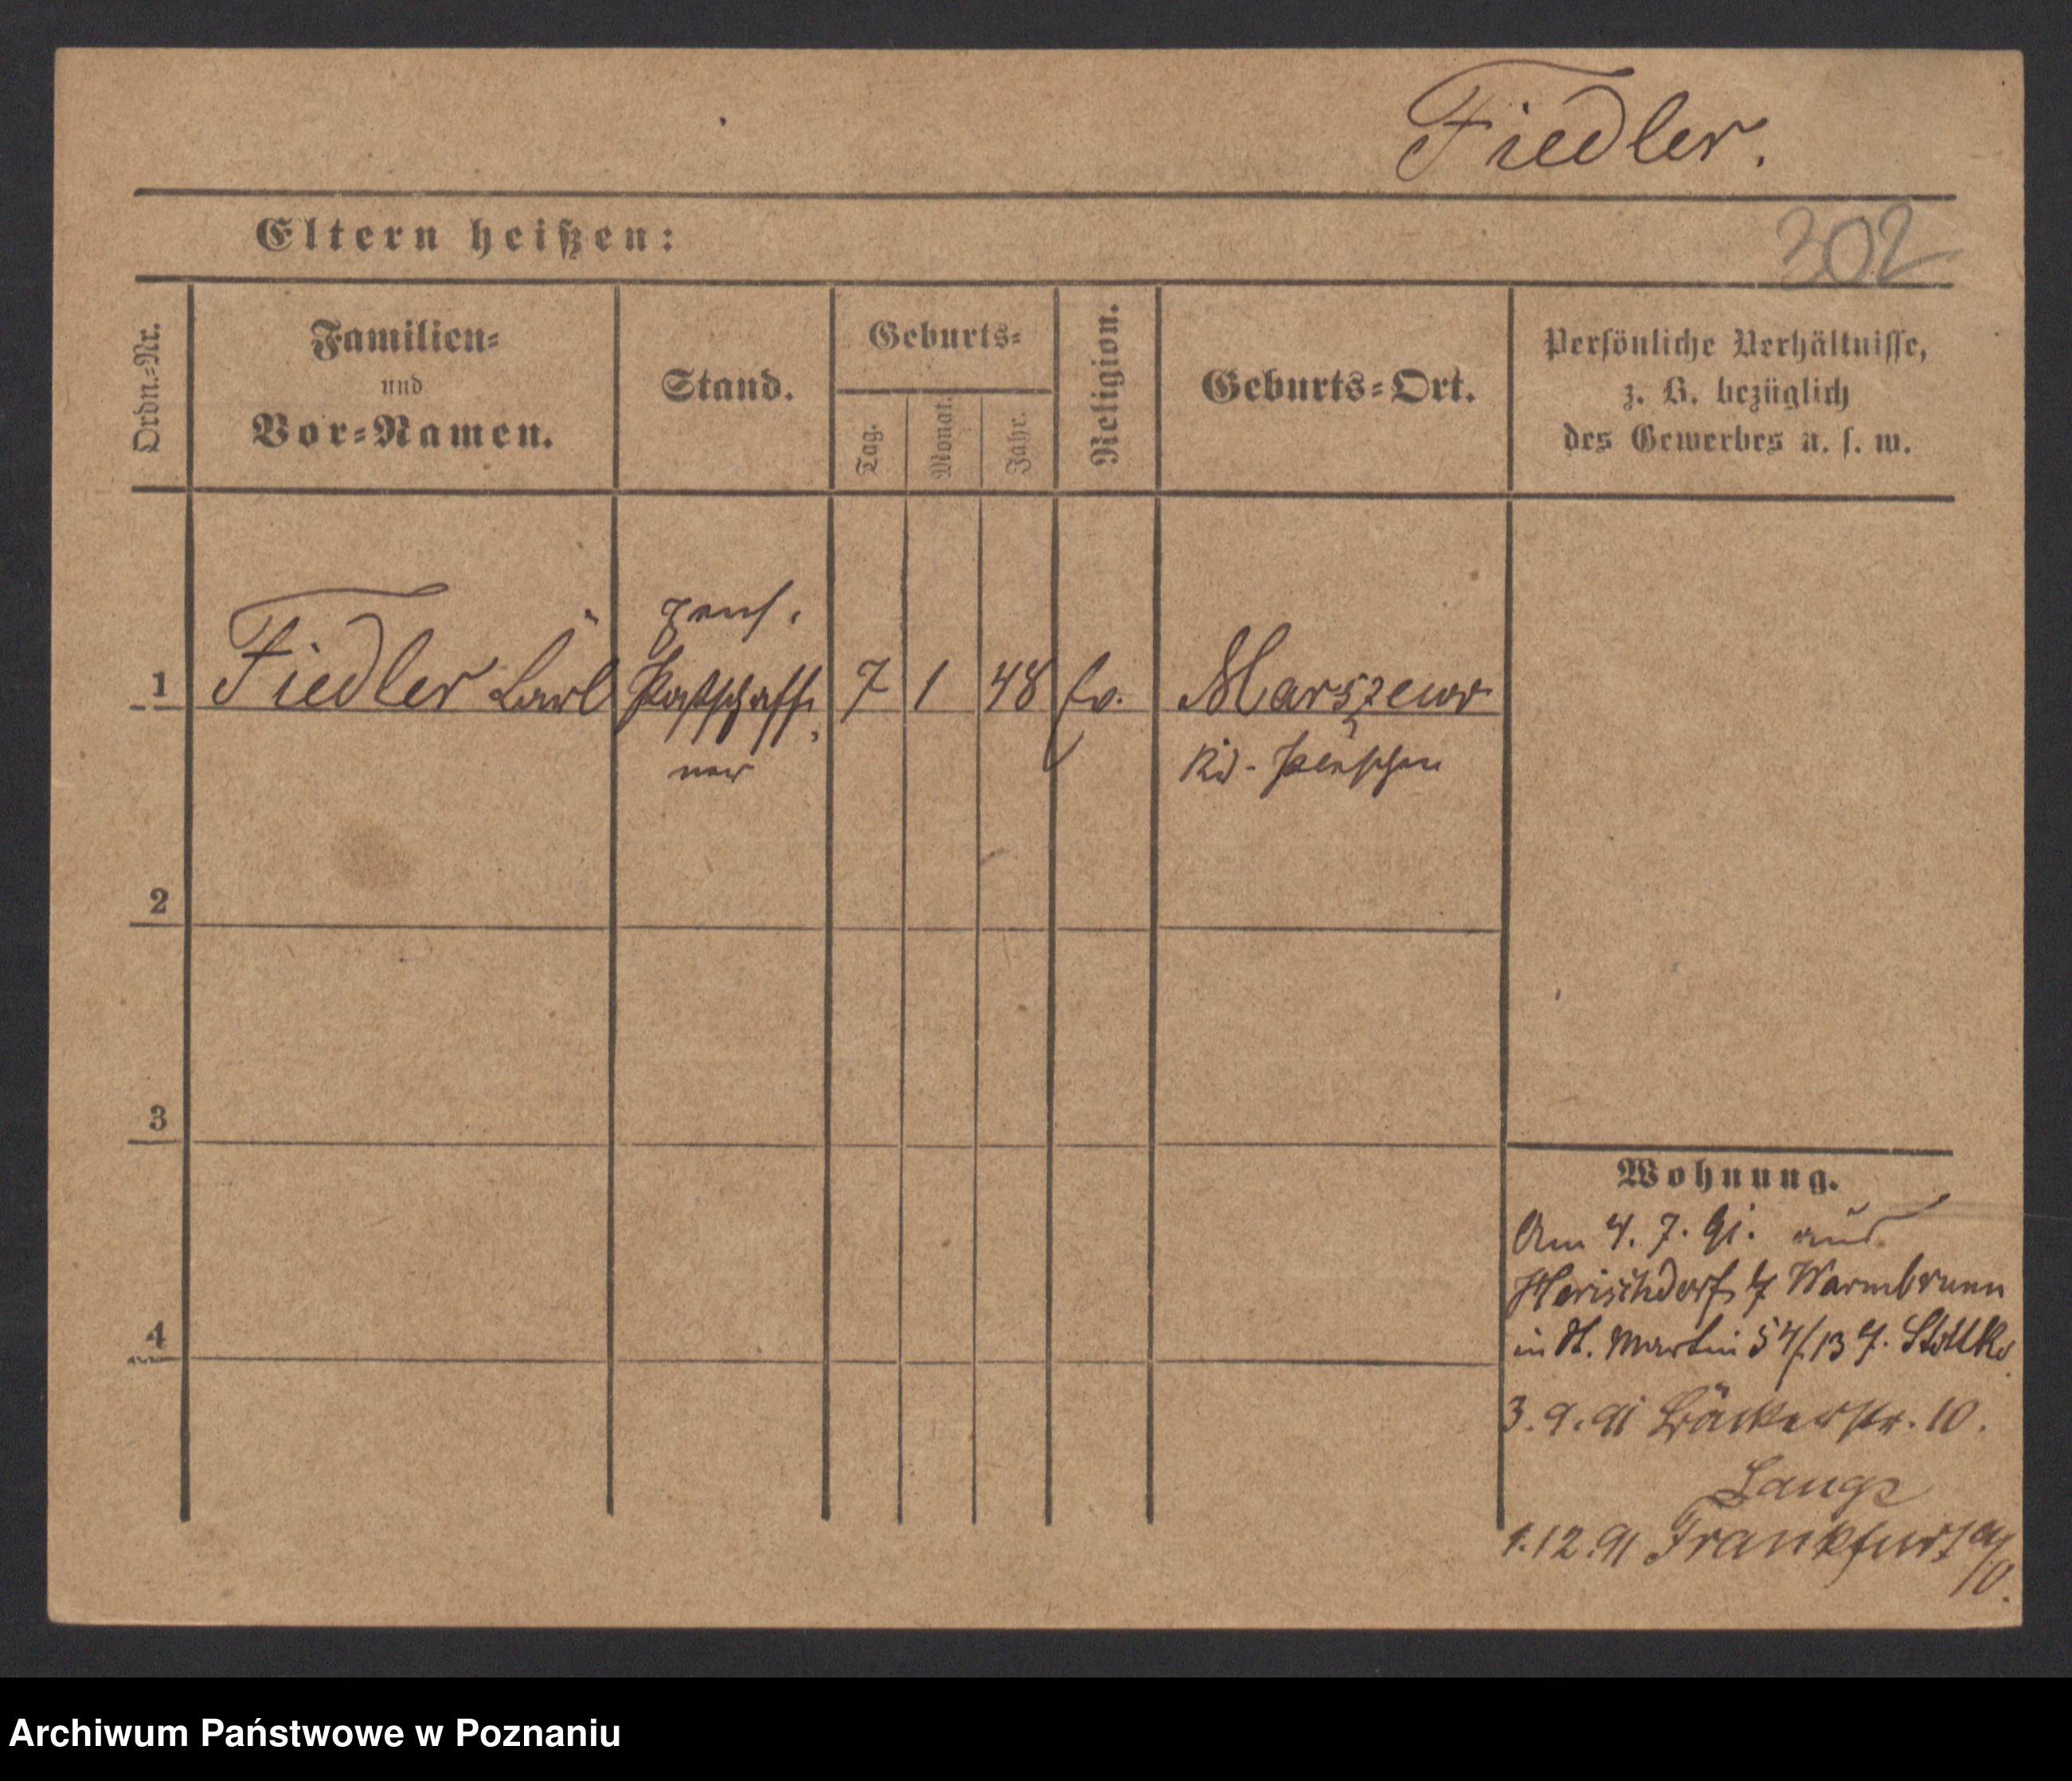 Fiedler.
Eltern heißen:
302
Ordn.-Nr.
Familien-
und
Vor-Namen.
Stand.
Geburts-
Tag.
Monat.
Jahr.
Religion.
Geburts-Ort.
Persönliche Verhältnisse,
z. B. bezüglich
des Gewerbes u. s. w.
pens.
1 Fiedler Carl Postschaff- 7 1 48 ev. Marszew
ner Kr. Pleschen
2
3
4
Wohnung.
Am 4. 7. 91. aus
Herischdorf Warmbrunn
in St. Martin 54/ 13
3. 9. 91 Bäckerstr. 10.
Lange
1. 12. 91 Frankfurt a/
O.
Archiwum Państwowe w Poznaniu